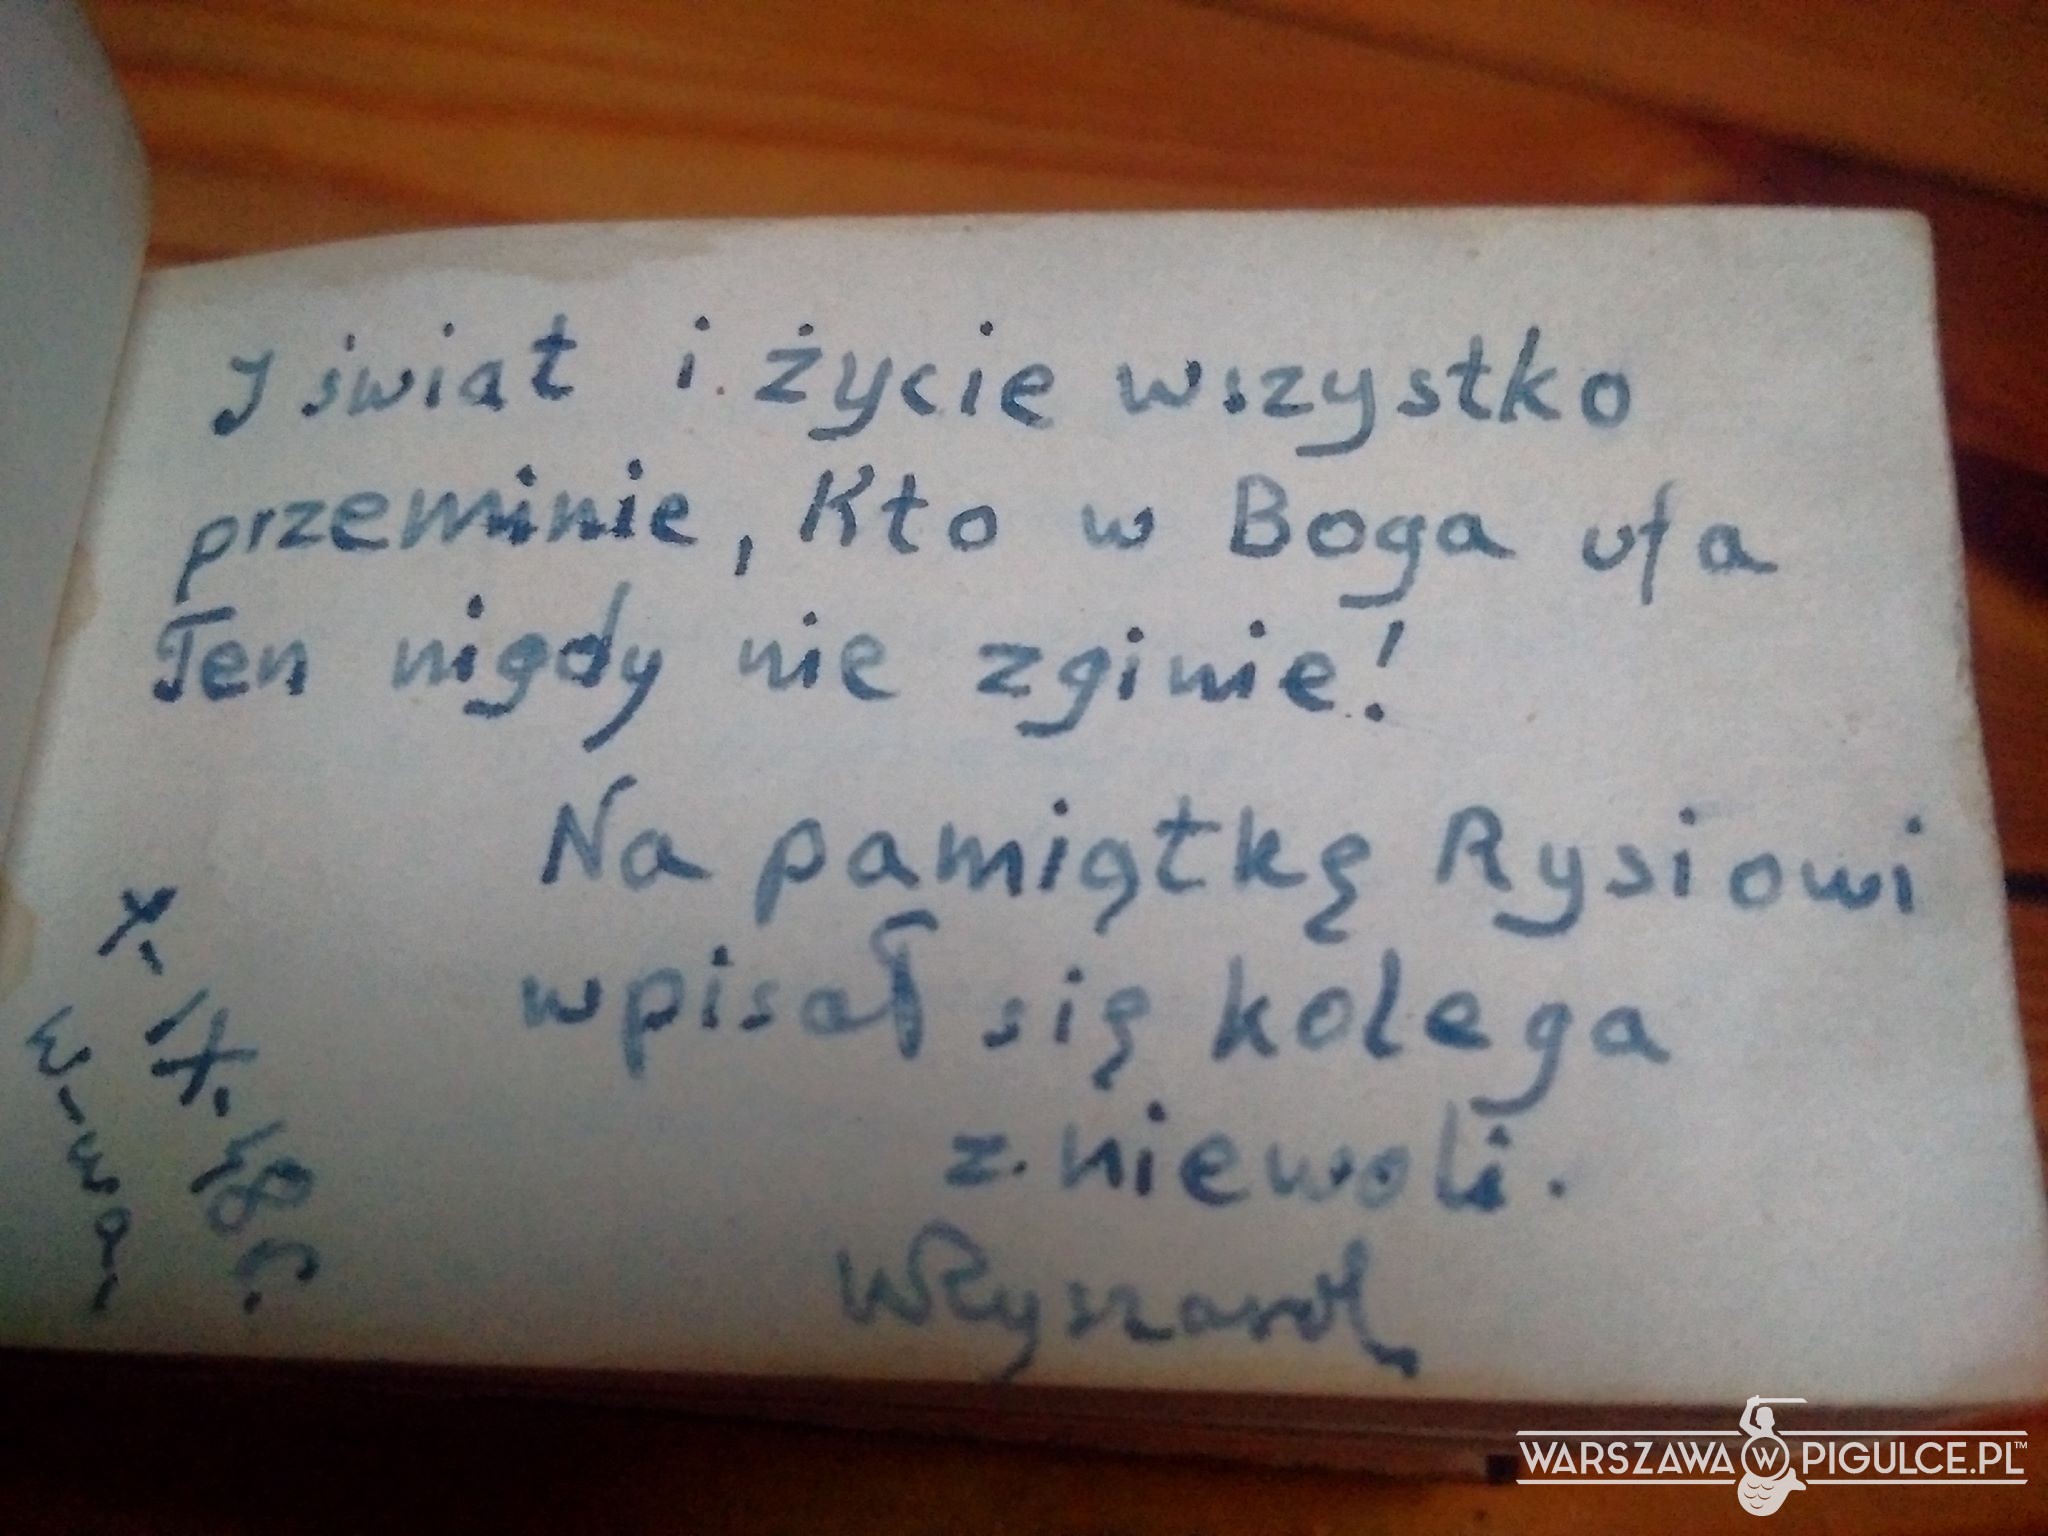 I świat i życie wszystko
przeminie, Kto w Boga ufa
Ten nigdy nie zginie!
Na pamiątkę Rysiowi
wpisał się kolega
z niewoli.
WRyszard
WARSZAWA W PIGULCE.PL™